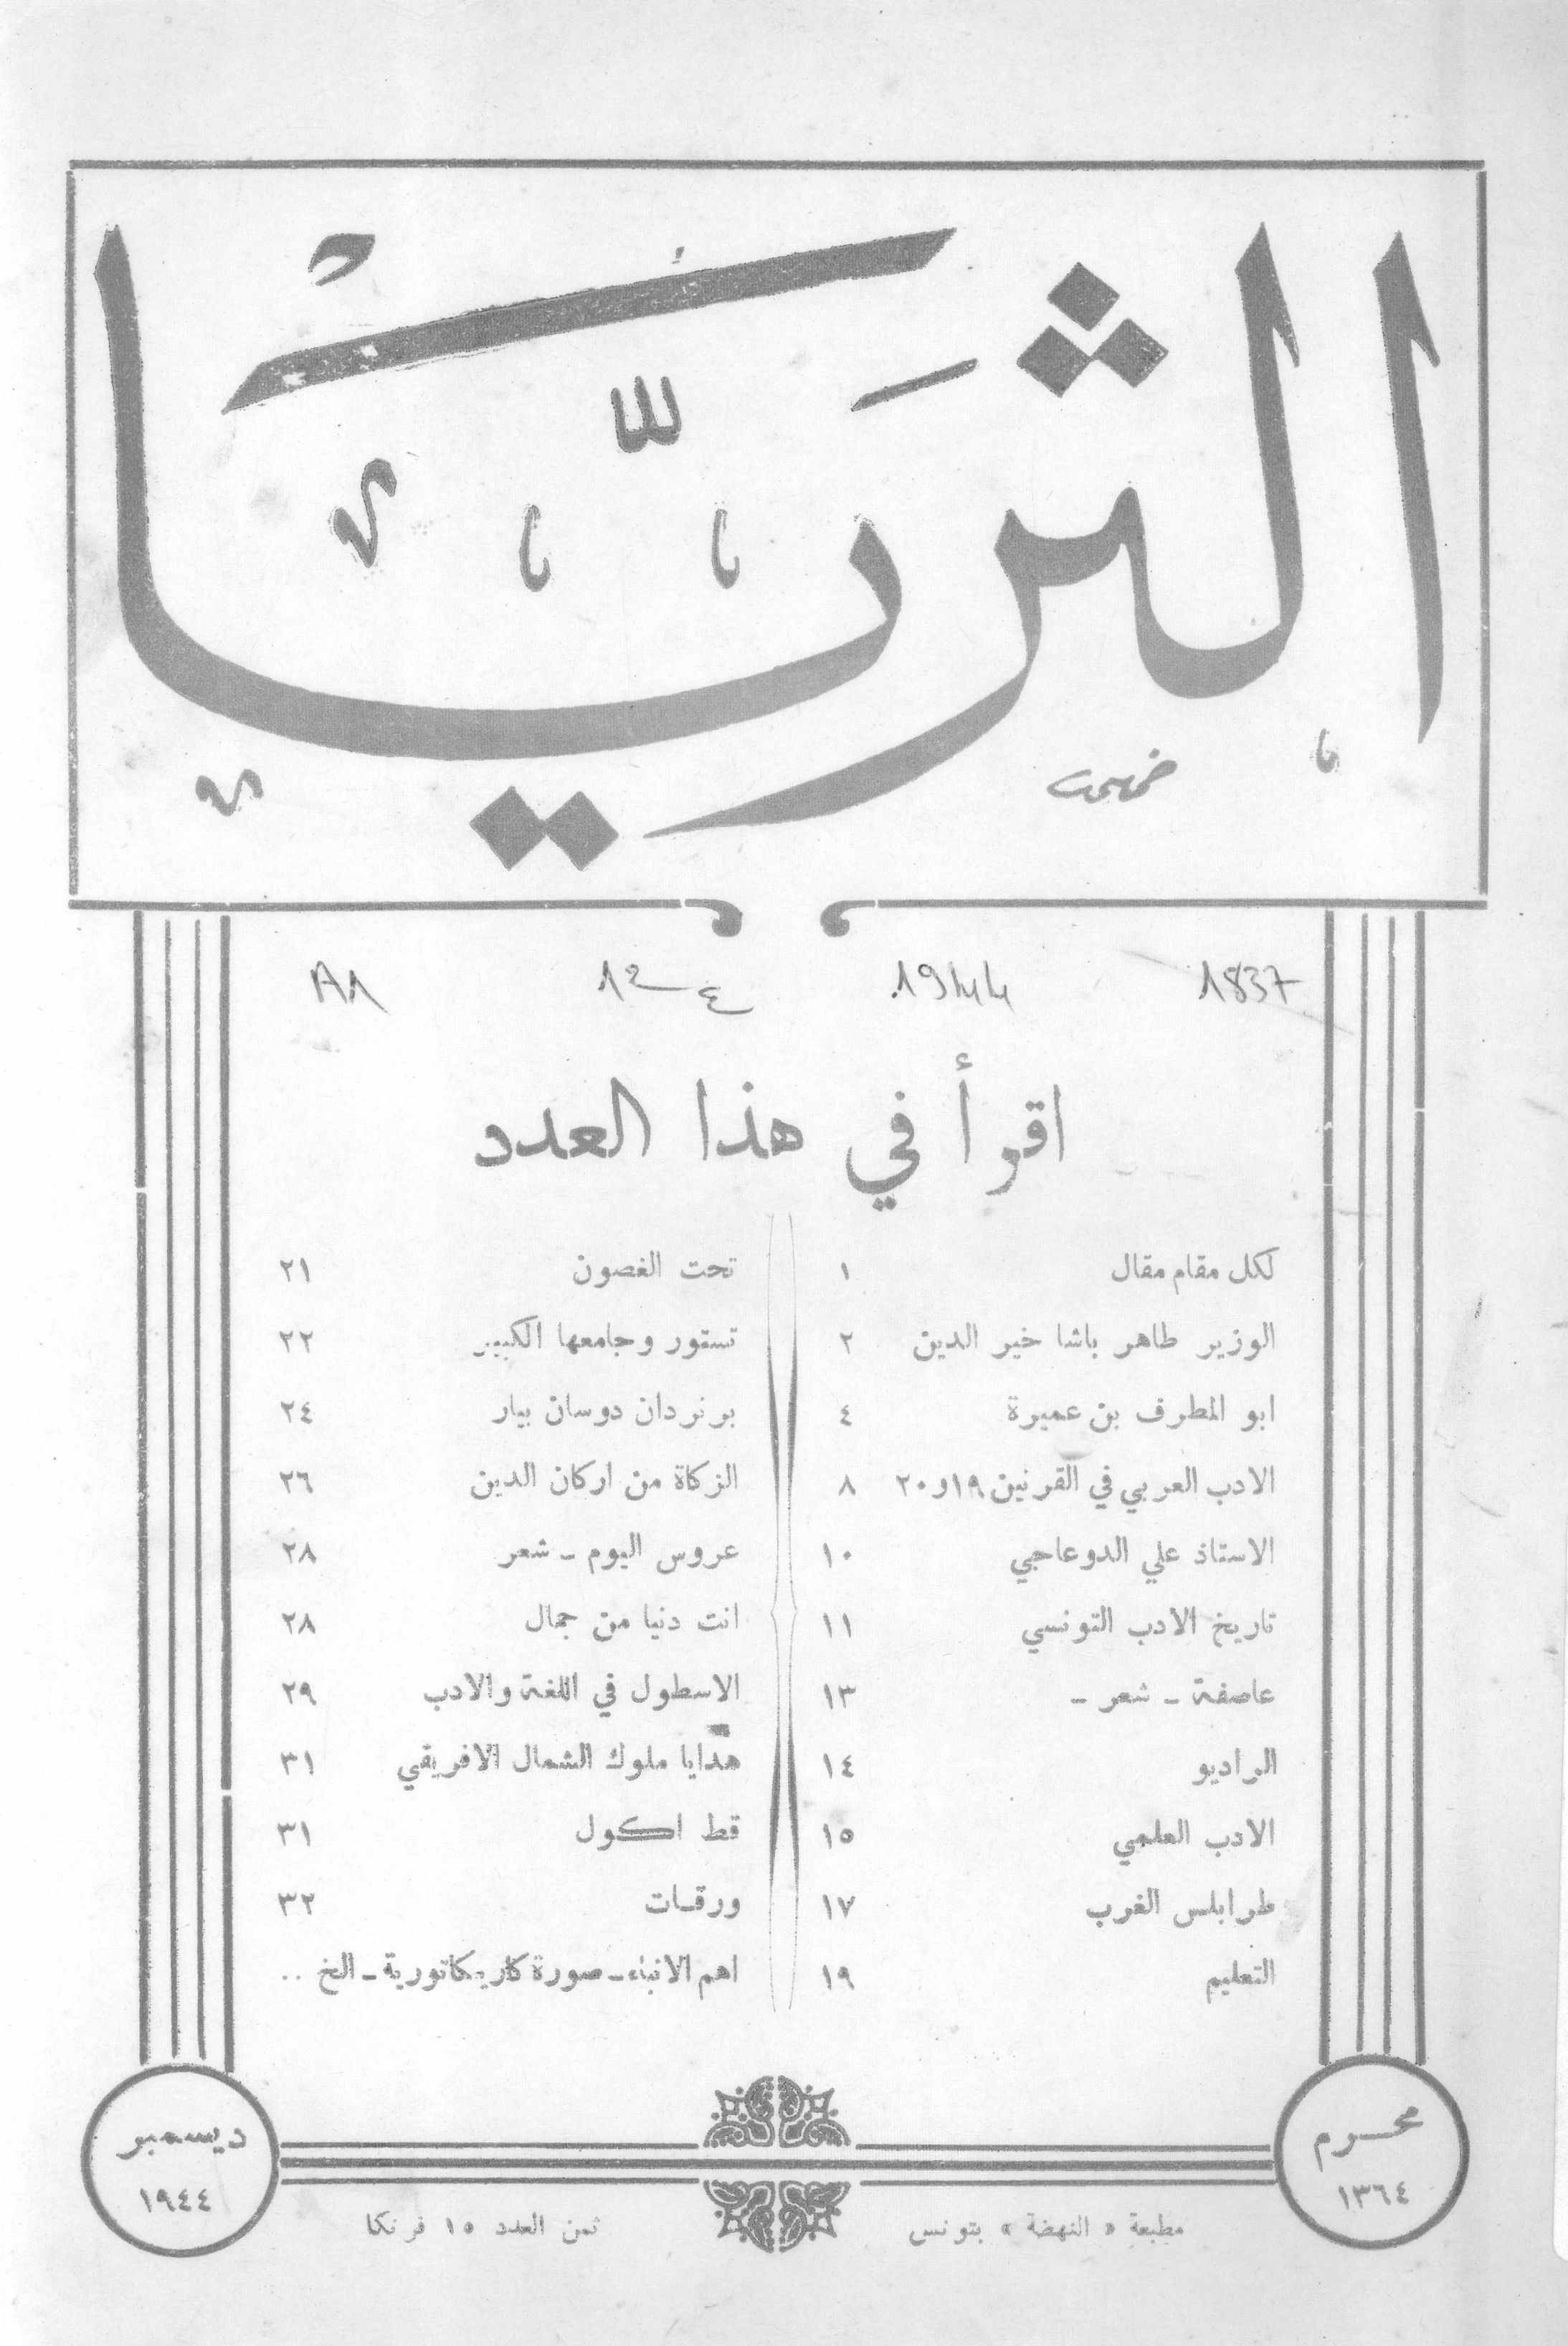 الثريا
1837 1944 12 A1
اقرأ في هذا العدد
لكل مقام مقال ١
الوزير طاهر باشا خير الدين ٢
ابو المطرف بن عميرة ٤
الادب العربي في القرنين ١٩و٢٠ ٨
الاستاذ علي الدوعاجي ١٠
تاريخ الادب التونسي ١١
عاصفة - شعر - ١٣
الراديو ١٤
الادب العلمي ١٥
طرابلس الغرب ١٧
التعليم ١٩
تحت الغصون ٢١
تستور وجامعها الكبير ٢٢
برنردان دوسان بيار ٢٤
الزكاة من اركان الدين ٢٦
عروس اليوم - شعر ٢٨
انت دنيا من جمال ٢٨
الاسطول في اللغة والادب ٢٩
هدايا ملوك الشمال الافريقي ٣١
قط اكول ٣١
ورقات ٣٢
اهم الانباء - صورة كاريكاتورية - الخ ..
محرم
١٣٦٤
ديسمبر
١٩٤٤
مطبعة « النهضة » بتونس
ثمن العدد ١٥ فرنكا